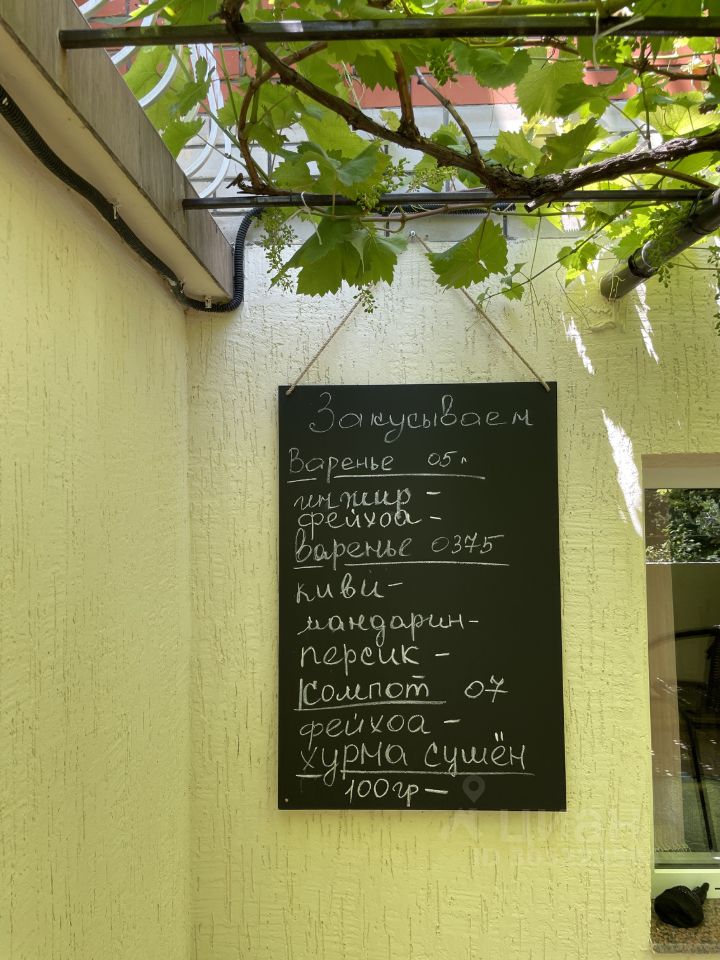 Закусываем
Варенье 05л
инжир -
фейхоа -
варенье 0375
киви -
мандарин -
персик -
Компот 07
фейхоа -
хурма сушён
100гр -
циан